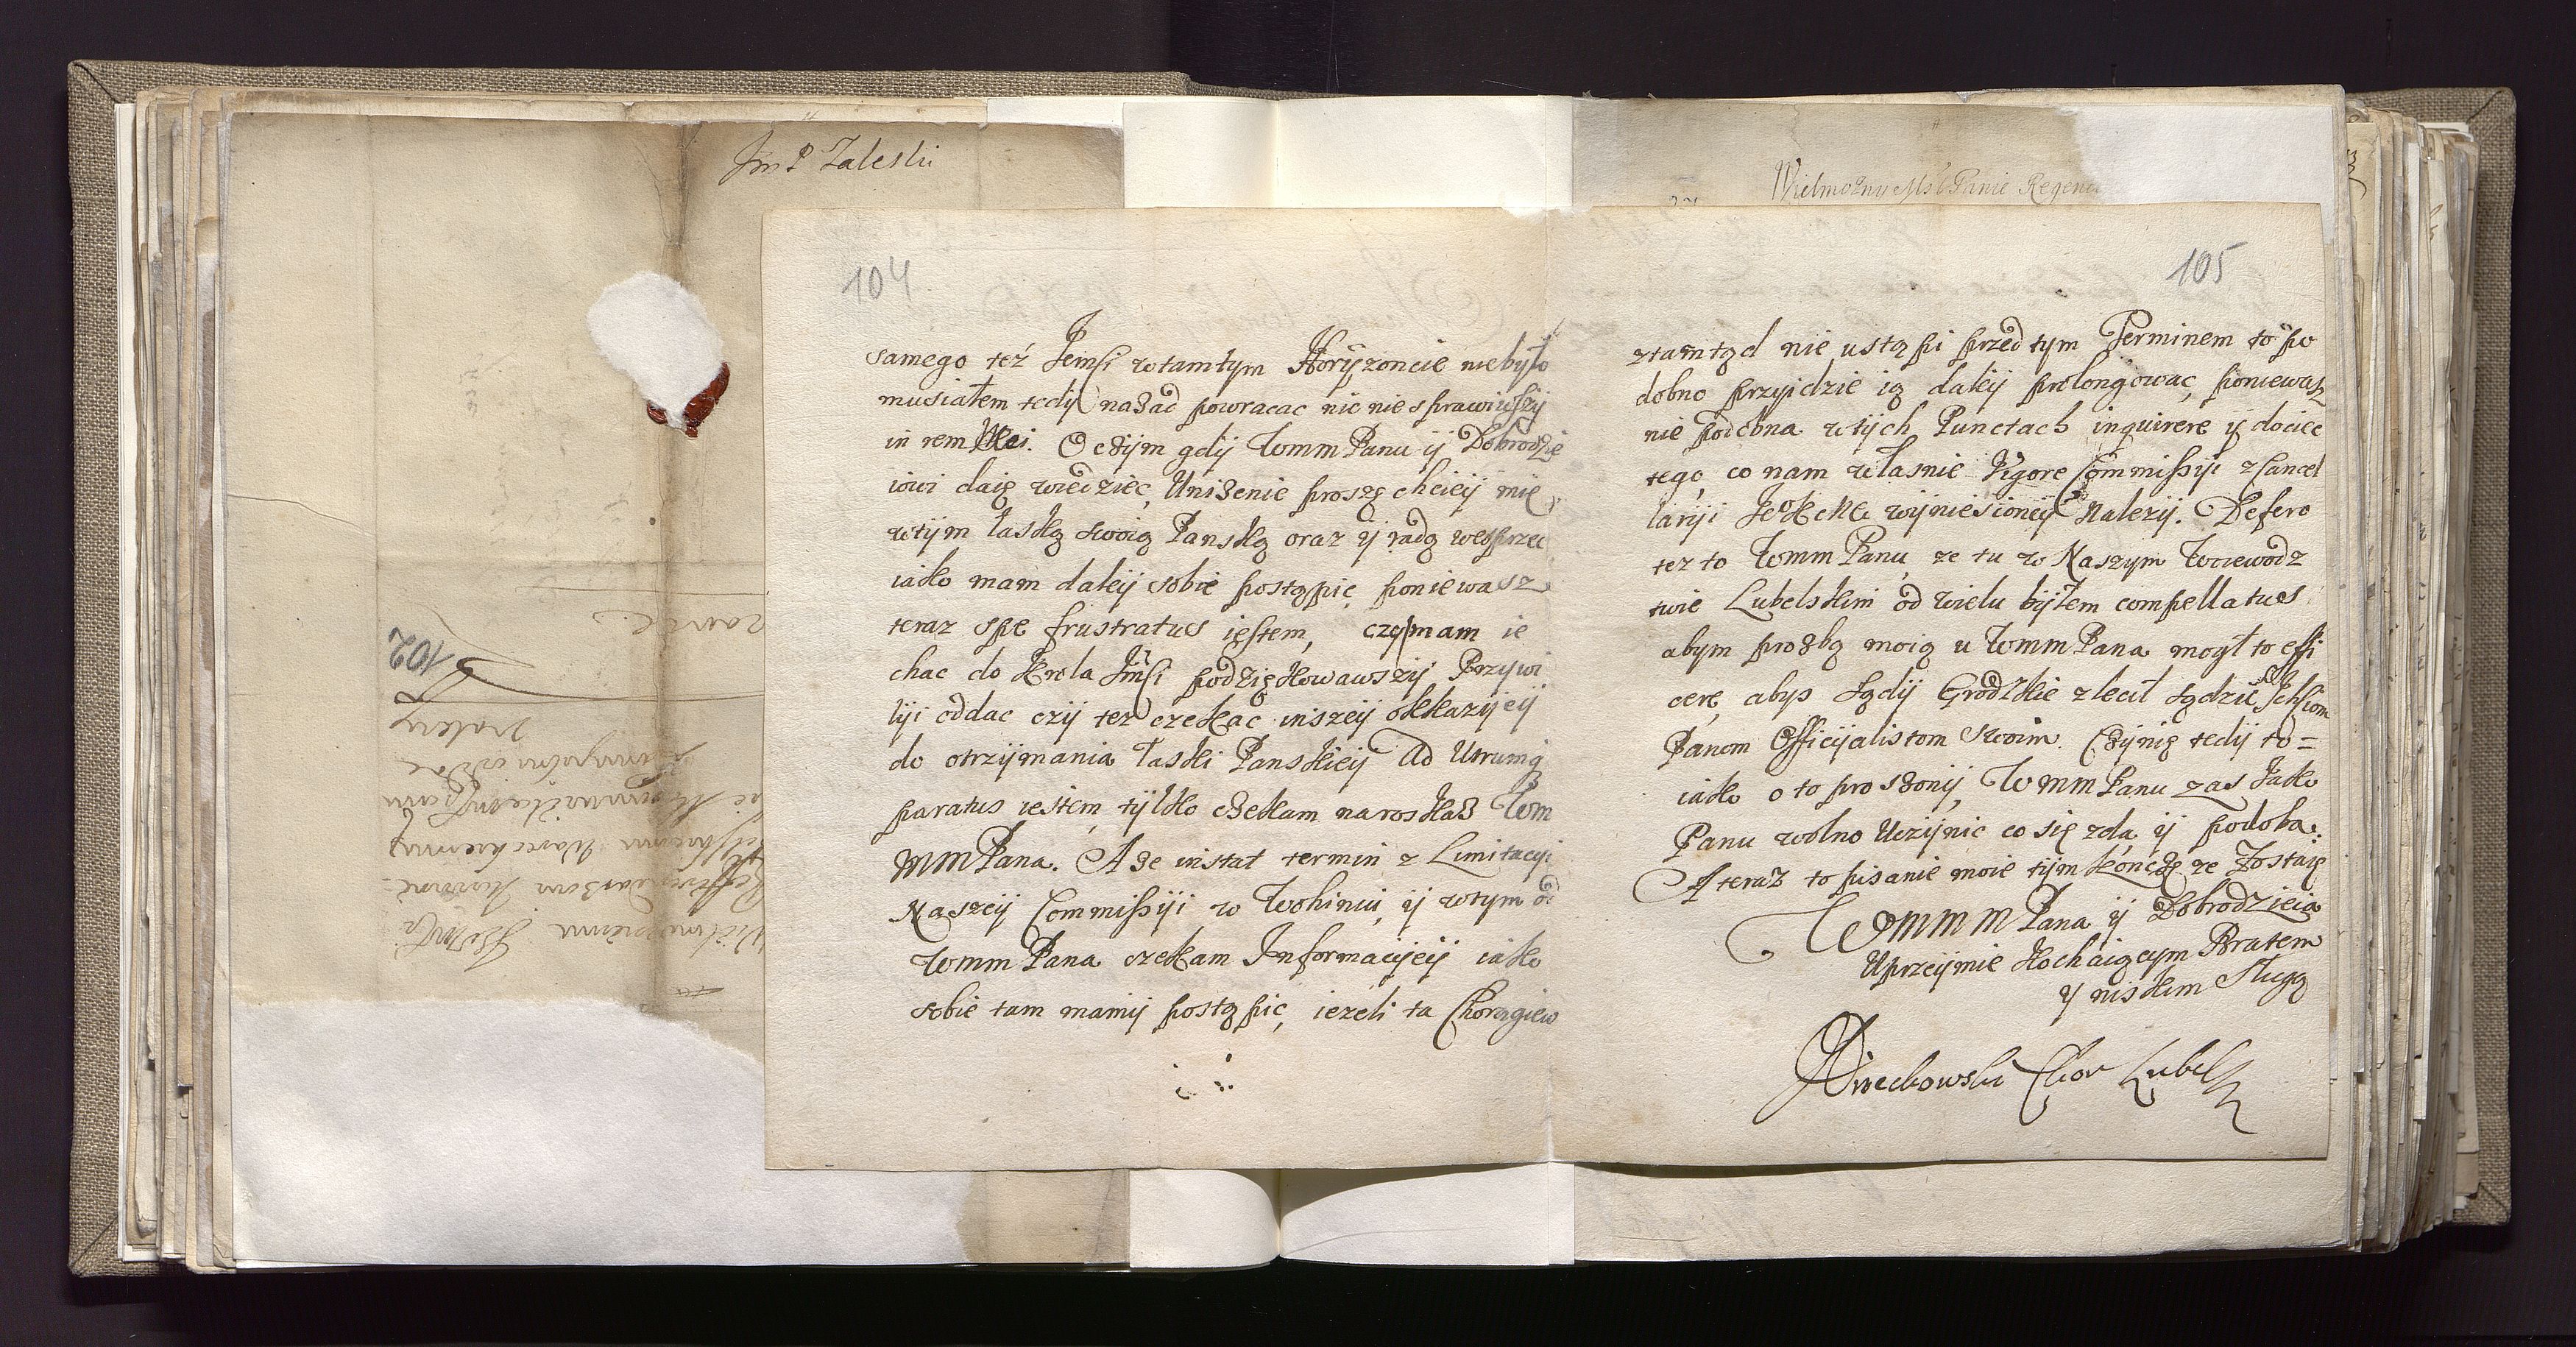 Jm P Zaleski
102
104
samego też Jeimſi w tamtym Horÿzoncie niebyło
musiałem tedy nazad powracac nic nie sprawiwſzÿ
in rem Mei. O czÿm gdÿ Wmm Panu ÿ Dobrodzie
iowi daię wiedziec, Unizenie proszę chcieÿ mię
wtÿm łaską swoią Panską oraz ÿ radą wesprzec
iako mam daleÿ sobie postąpic, poniewasz
teraz spe frustratus iestem, czy mam ie
chac do Krola Jmſi podziękowawszÿ Przywi
lÿi oddac czÿ tez czekac inszeÿ okkazÿieÿ
do otrzÿmania łaski Panskieÿ Ad Utrumq
paratus iestem, tÿlko czekam na roskaz Wm
MM Pana. A ze instat termin z Limitacyi
Naszeÿ Commiſsÿi w Wohiniu, ÿ wtym od
Wmm Pana czekam Informacÿieÿ iako
sobie tam mamÿ postąpic, iezeli ta Chorągiew
105
Wielmożny Mſć Panie Regen
ztamtąd nie ustąpi przed tym Terminem to po
dobno przyidzie ią daleÿ prolongowac, poniewasz
nie podobna w tÿch Punctach inquirere ÿ dociec
tego, co nam własnie Vigore Commiſsÿi z Cancel
larÿi wÿniesioneÿ Nalezÿ. Defero
tez to Wmm Panu, ze tu w Naszym Woiewodz
twie Lubelskim od wielu bÿłem compellatus
abym prozbą moią u Wmm Pana mogł to effi
cere, abys Sądÿ Grodzkie zlecił sądzić Ichſciom
Panom Officÿalistom swoim. Czÿnię tedÿ to=
iako o to proszonÿ, Wmm Panu zas Jako
Panu wolno Uczÿnic co się zda, ÿ podoba.
A teraz to pisanie moie tym kończę ze Zostaię
WMMM Pana ÿ Dobrodzieia
Uprzeÿmie Kochaiącym Bratem
ÿ niskim Sługą
Chor Lubel